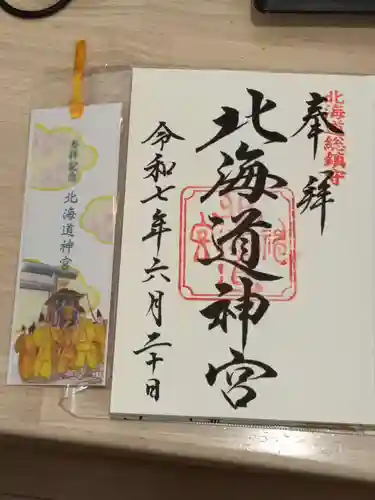 北海道総鎮守
奉拝
北海道神宮
令和七年六月二十日
参拝記念
北海道神宮